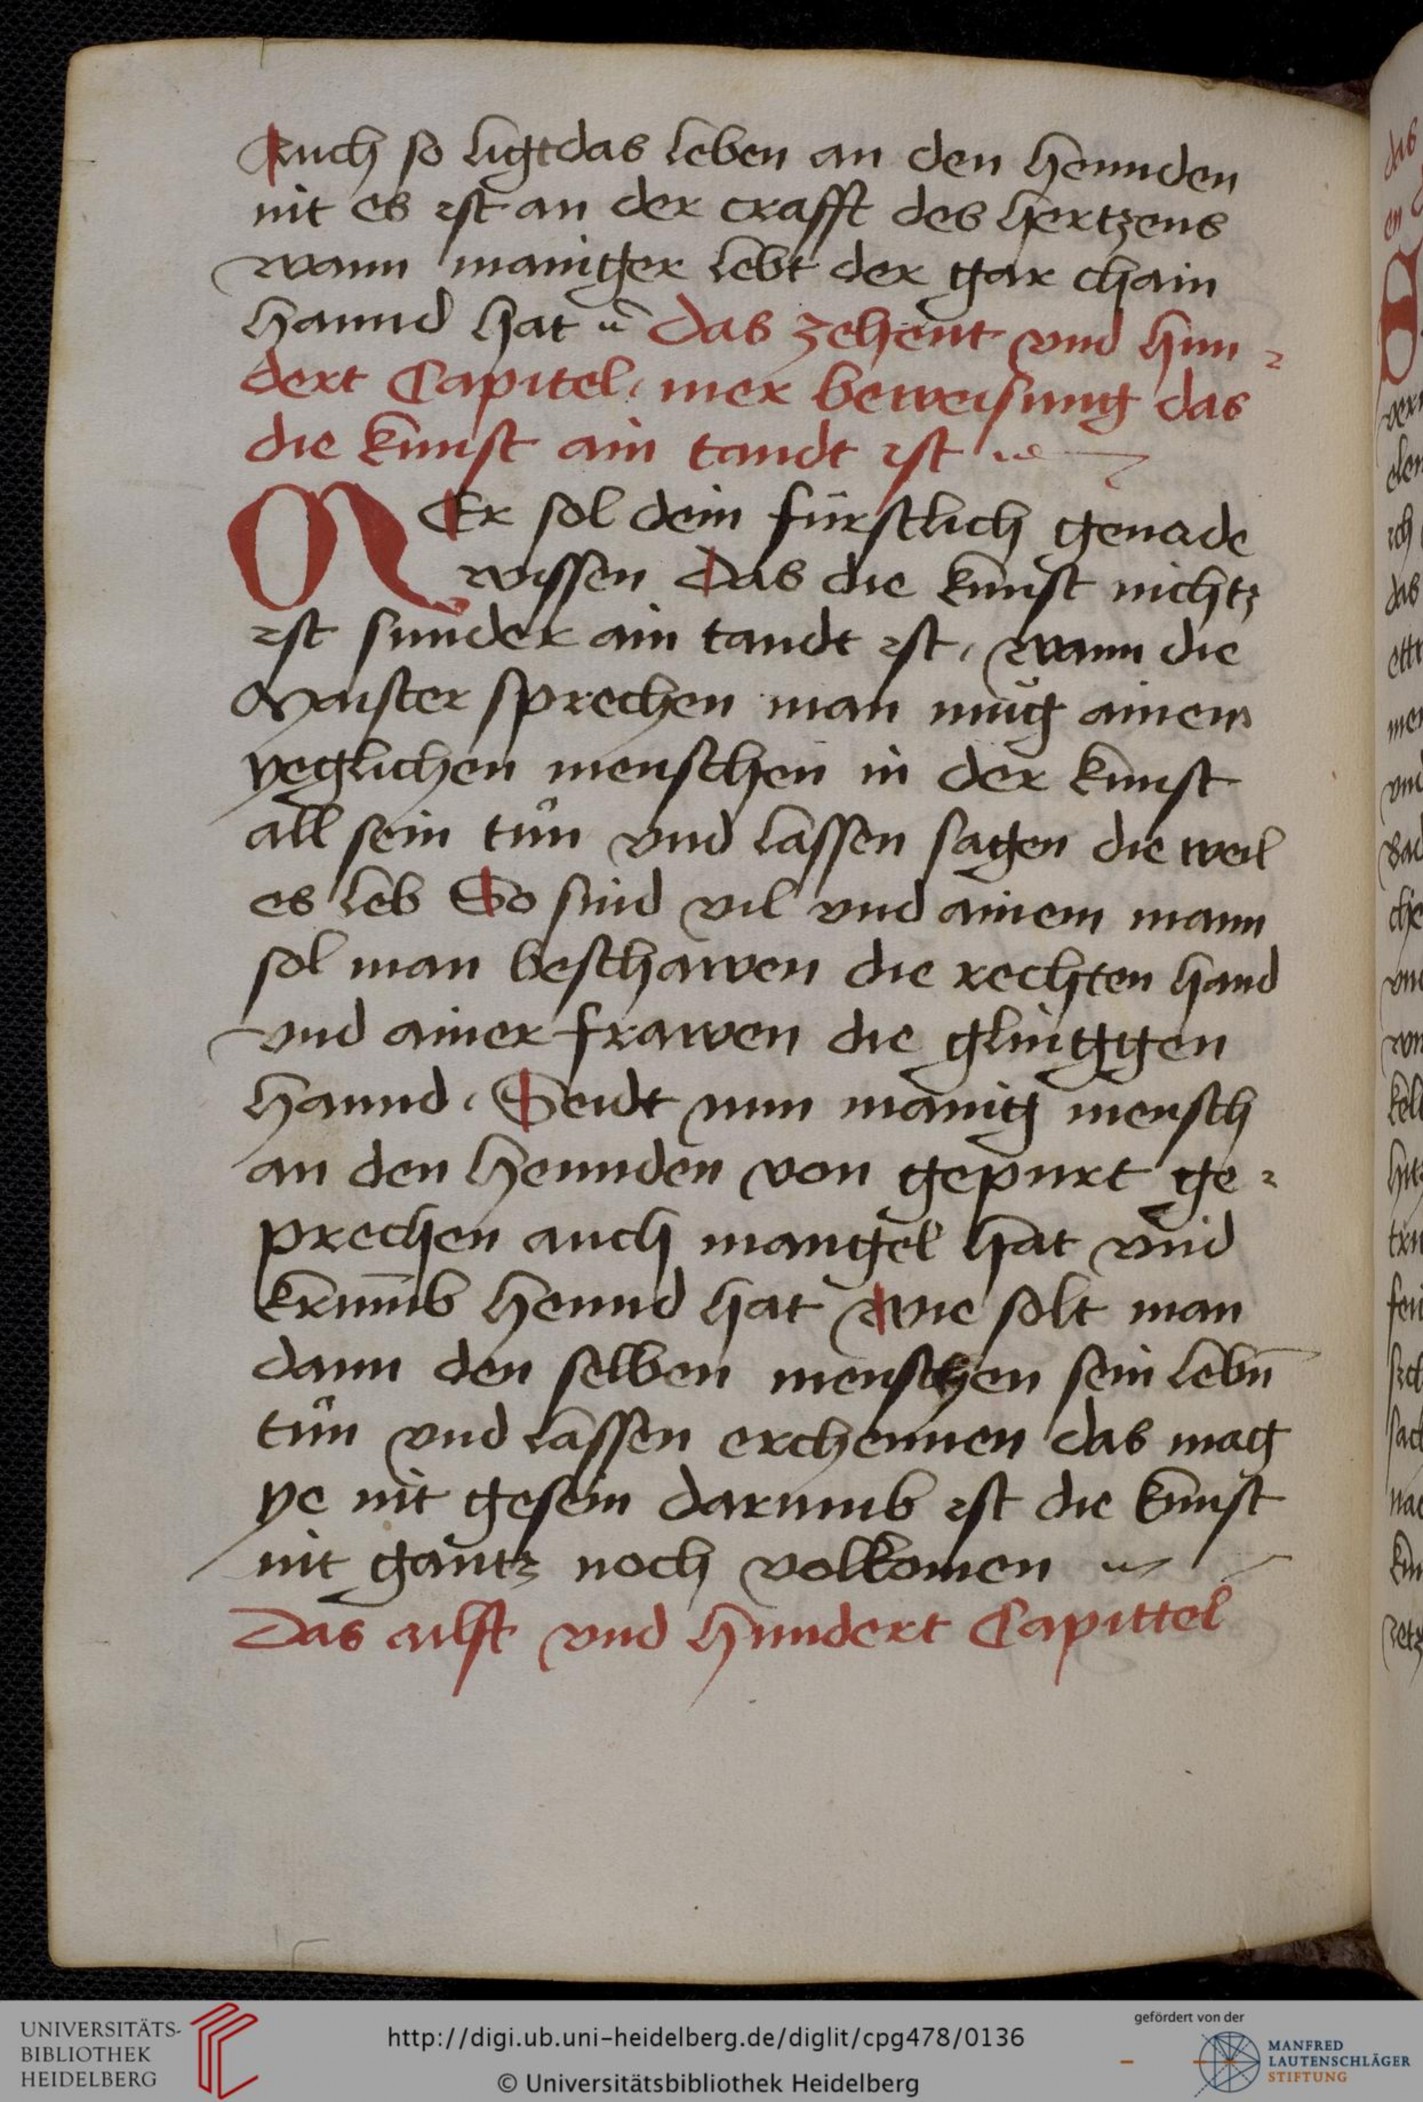 Auch so ligt das leben an den hennden
nit es ist an der crafft des hertzens
wann maniger lebt der gar chain
hannd hat Das zehent vnd hun-
dert Capitel mer beweisung das
die kunst ain tandt ist
MEr sol dein fürstlich genade
wissen das die kunst nichtz
ist sunder ain tandt ist, wann die
Maister sprechen man mug ainem
yeglichen menschen in der kunst
all sein tůn vnd lassen sagen die weil
es leb So sind vil vnd ainem mann
sol man beschawen die rechten hand
vnd ainer frawen die glinggen
hannd. Seidt nun manig mensch
an den hennden von gepurt ge-
prechen auch mangel hat vnd
krumb hennd hat wie solt man
dann den selben menschen sein lebn̄
tůn vnd lassen erchennen das mag
ye nit gesein darumb ist die kunst
nit gantz noch volkomen
Das ailft vnd hundert Capittel
das
en
ver
elen
ich
das
men
vnd
che
ferr
UNIVERSITÄTS-
BIBLIOTHEK
HEIDELBERG
http://digi.ub.uni-heidelberg.de/diglit/cpg478/0136
© Universitätsbibliothek Heidelberg
gefördert von der
MANFRED
LAUTENSCHLÄGER
STIFTUNG